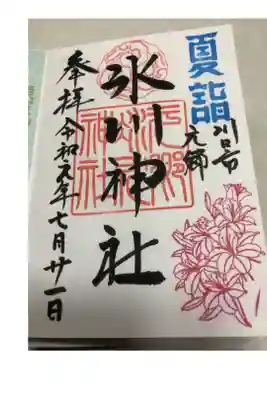 夏詣
川口市
元郷
氷川神社
奉拝 令和元年七月廿一日